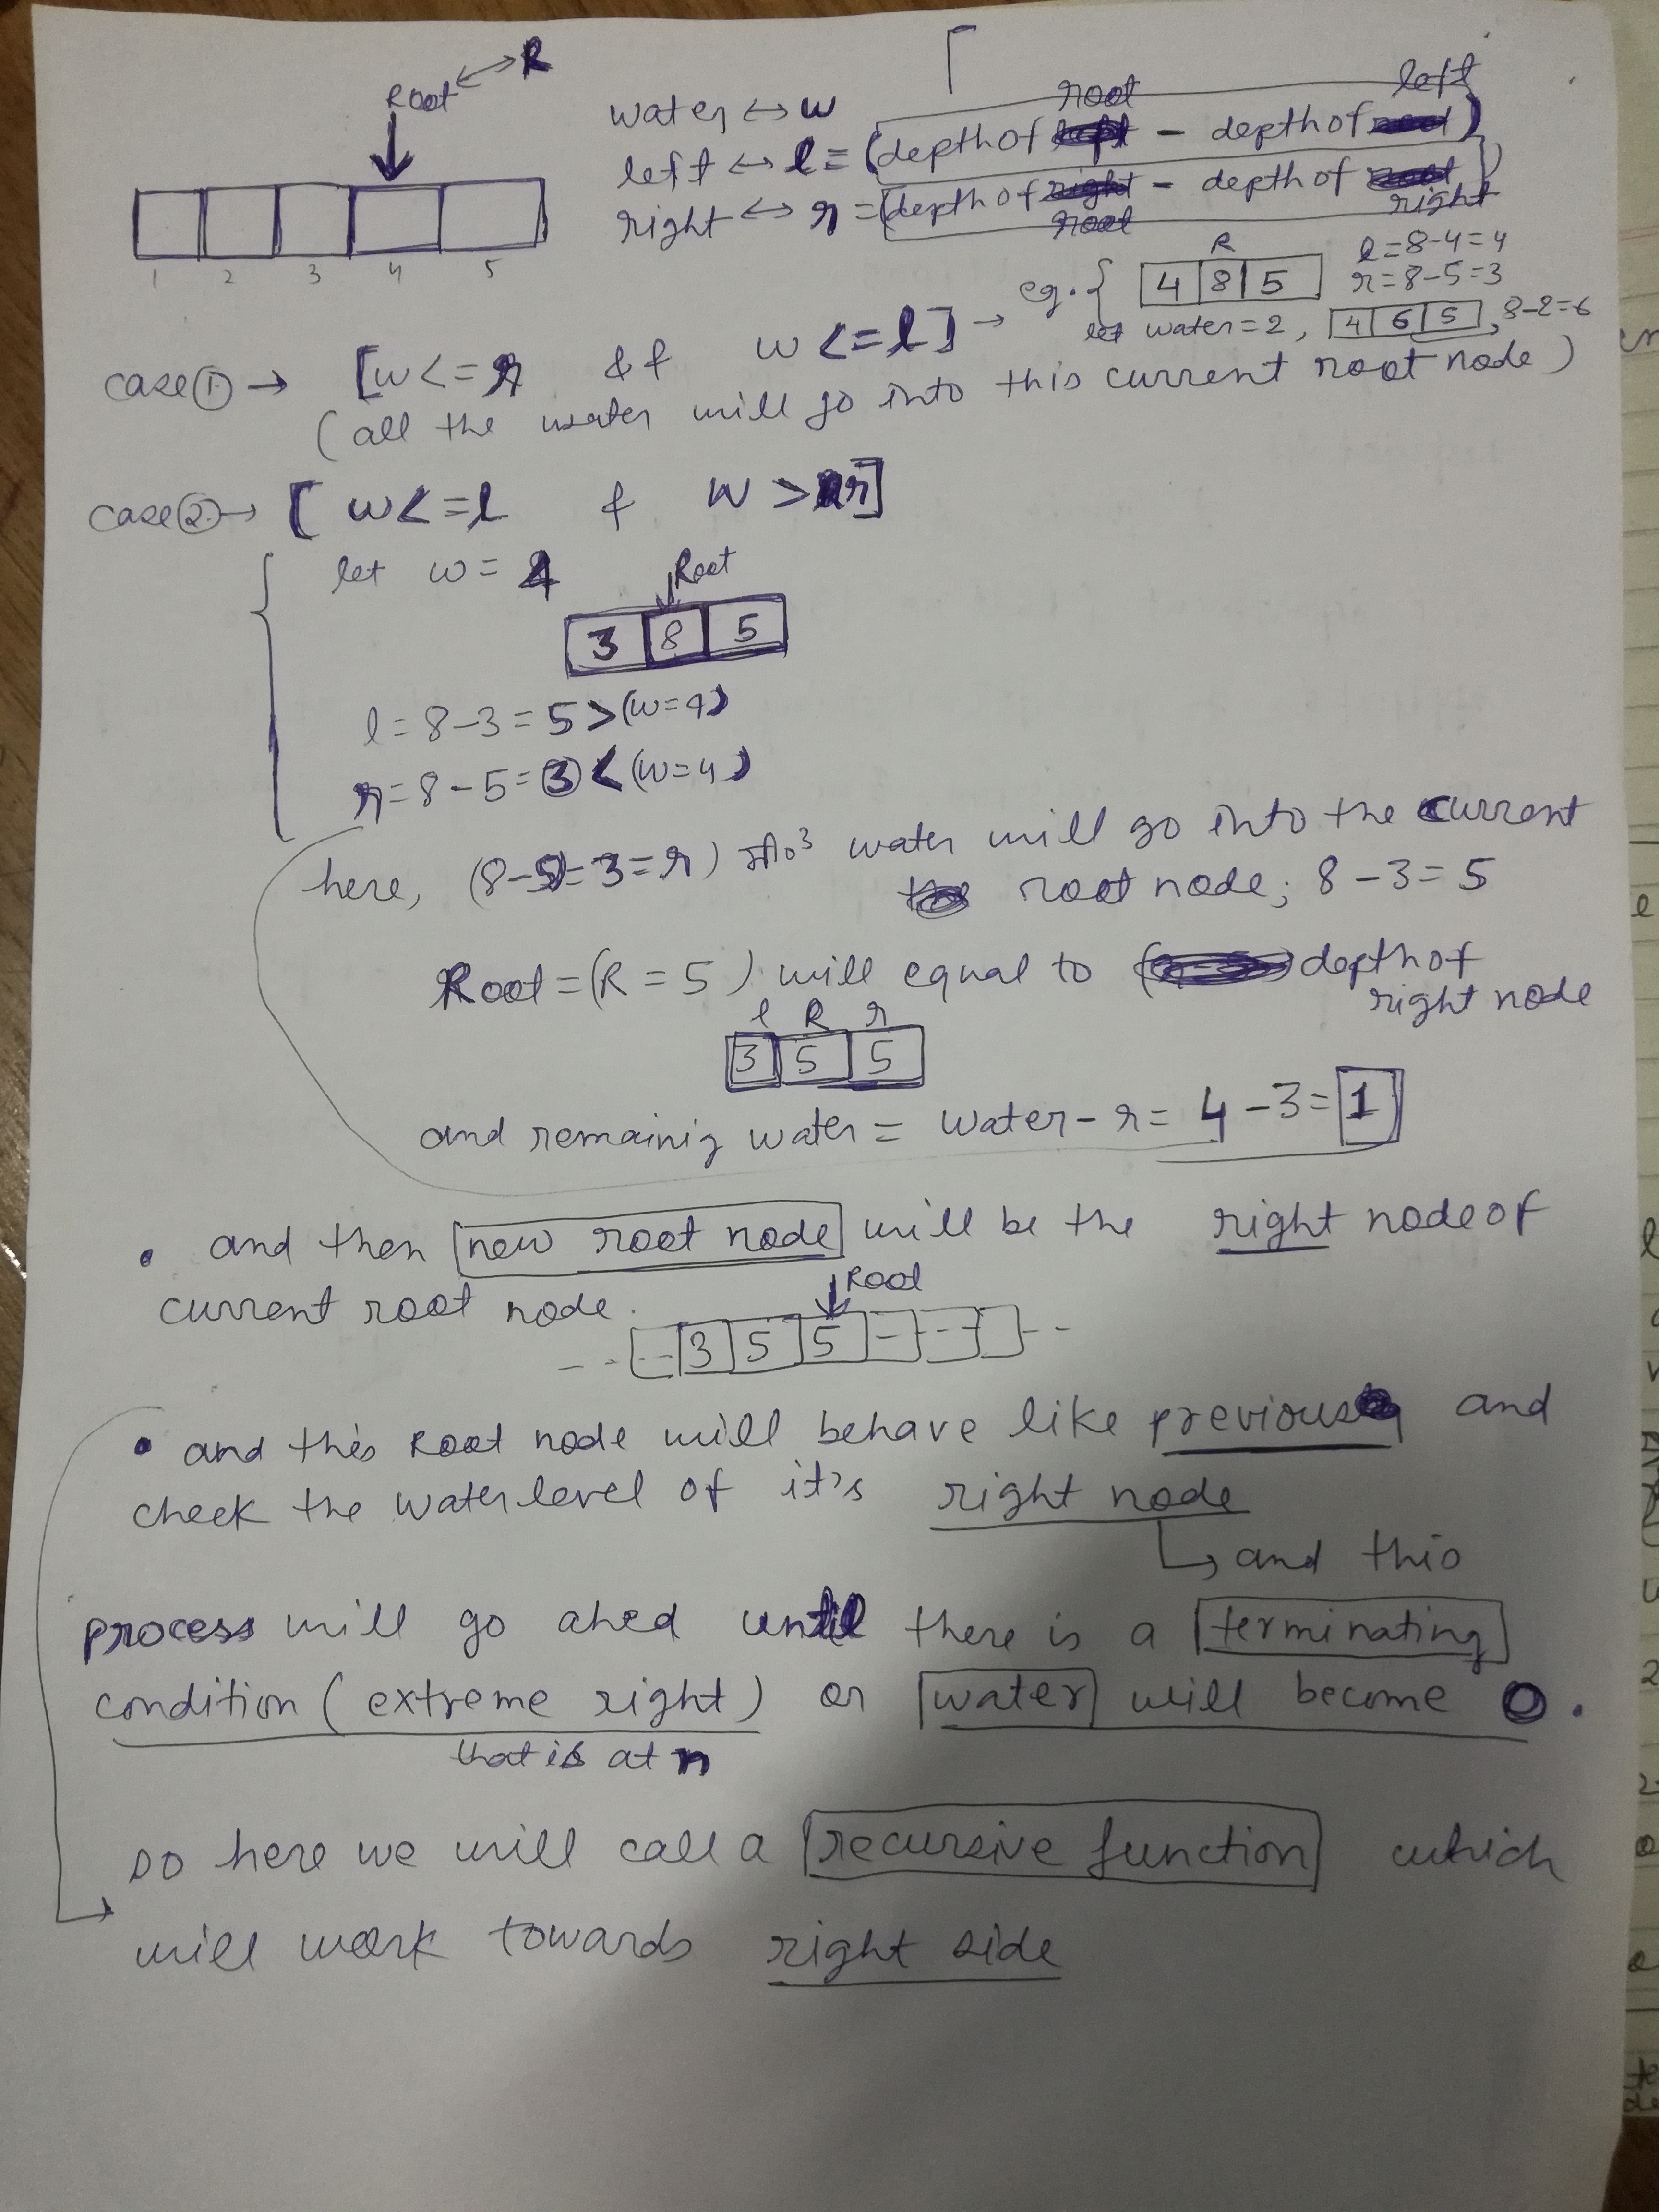 Root ↔ R
1 2 3 4 5
water ↔ w
left ↔ l = (depth of root - depth of left)
right ↔ r = (depth of root - depth of right)
eg. { R
4 8 5
l = 8-4 = 4
r = 8-5 = 3
let water = 2, 4 6 5, 8-2=6
case ① → [w <= r && w <= l] →
(all the water will go into this current root node)
case ② → [ w <= l & w > r]
let w = 4
Root
3 8 5
l = 8-3 = 5 > (w=4)
r = 8-5 = 3 < (w=4)
here, (8-5 = 3 = r) 3 water will go into the current
root node; 8-3 = 5
Root = (R = 5) will equal to depth of
right node
l R r
3 5 5
and remainig water = water - r = 4 - 3 = 1
• and then new root node will be the right node of
current root node.
Root
-- - 3 5 5 - -- - --
• and this Root node will behave like previous and
check the water level of it's right node
↳ and this
process will go ahed until there is a terminating
condition (extreme right) or water will become 0.
that is at n
so here we will call a recursive function which
will work towards right side